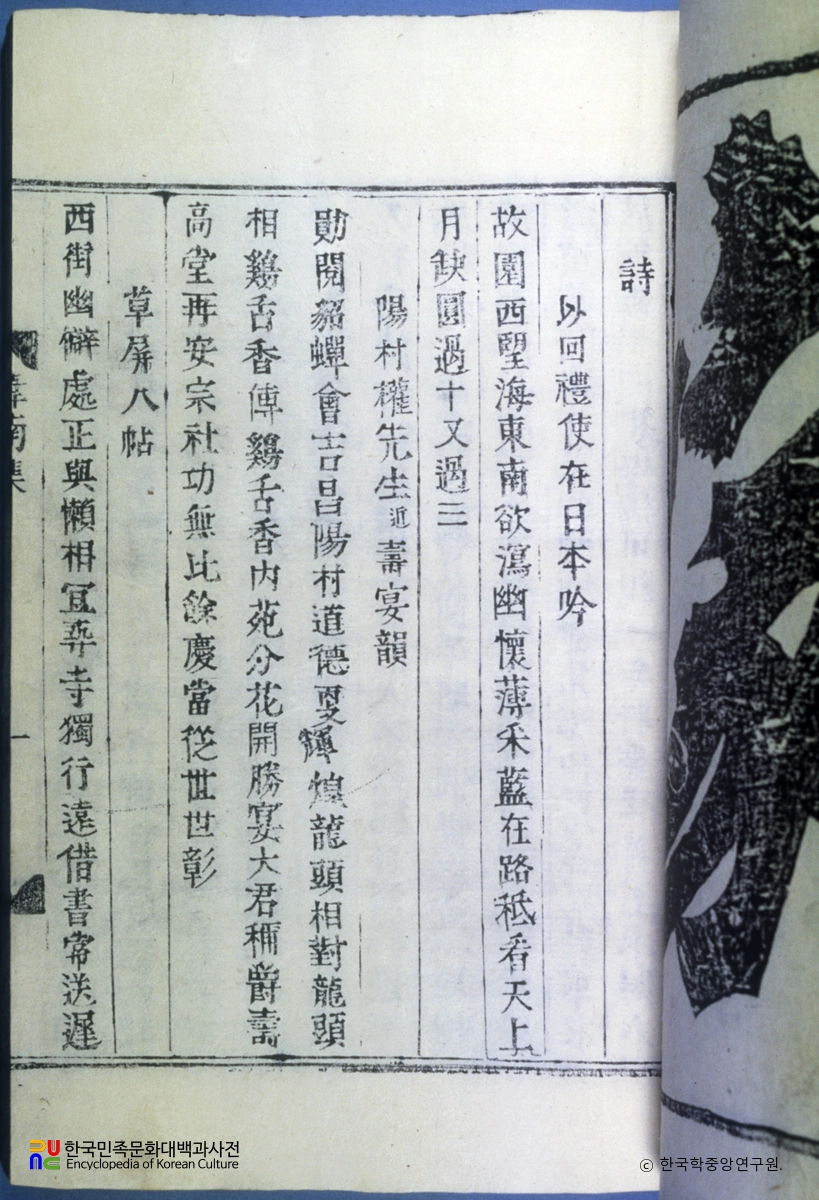 詩
以回禮使在日本吟
故園西望海東南欲瀉幽懷薄采藍在路秪看天上
月缺圓過十又過三
陽村權先生近壽宴韻
勛閥貂蟬會吉昌陽村道德更輝煌龍頭相對龍頭
相鷄舌香傳鷄舌香內苑分花開勝宴大君稱爵壽
高堂再安宗社功無比餘慶當從世世彰
草屏八帖
西街幽僻處正與懶相宜尋寺獨行遠借書常送遲
南集
一
한국민족문화대백과사전
Encyclopedia of Korean Culture
ⓒ 한국학중앙연구원.